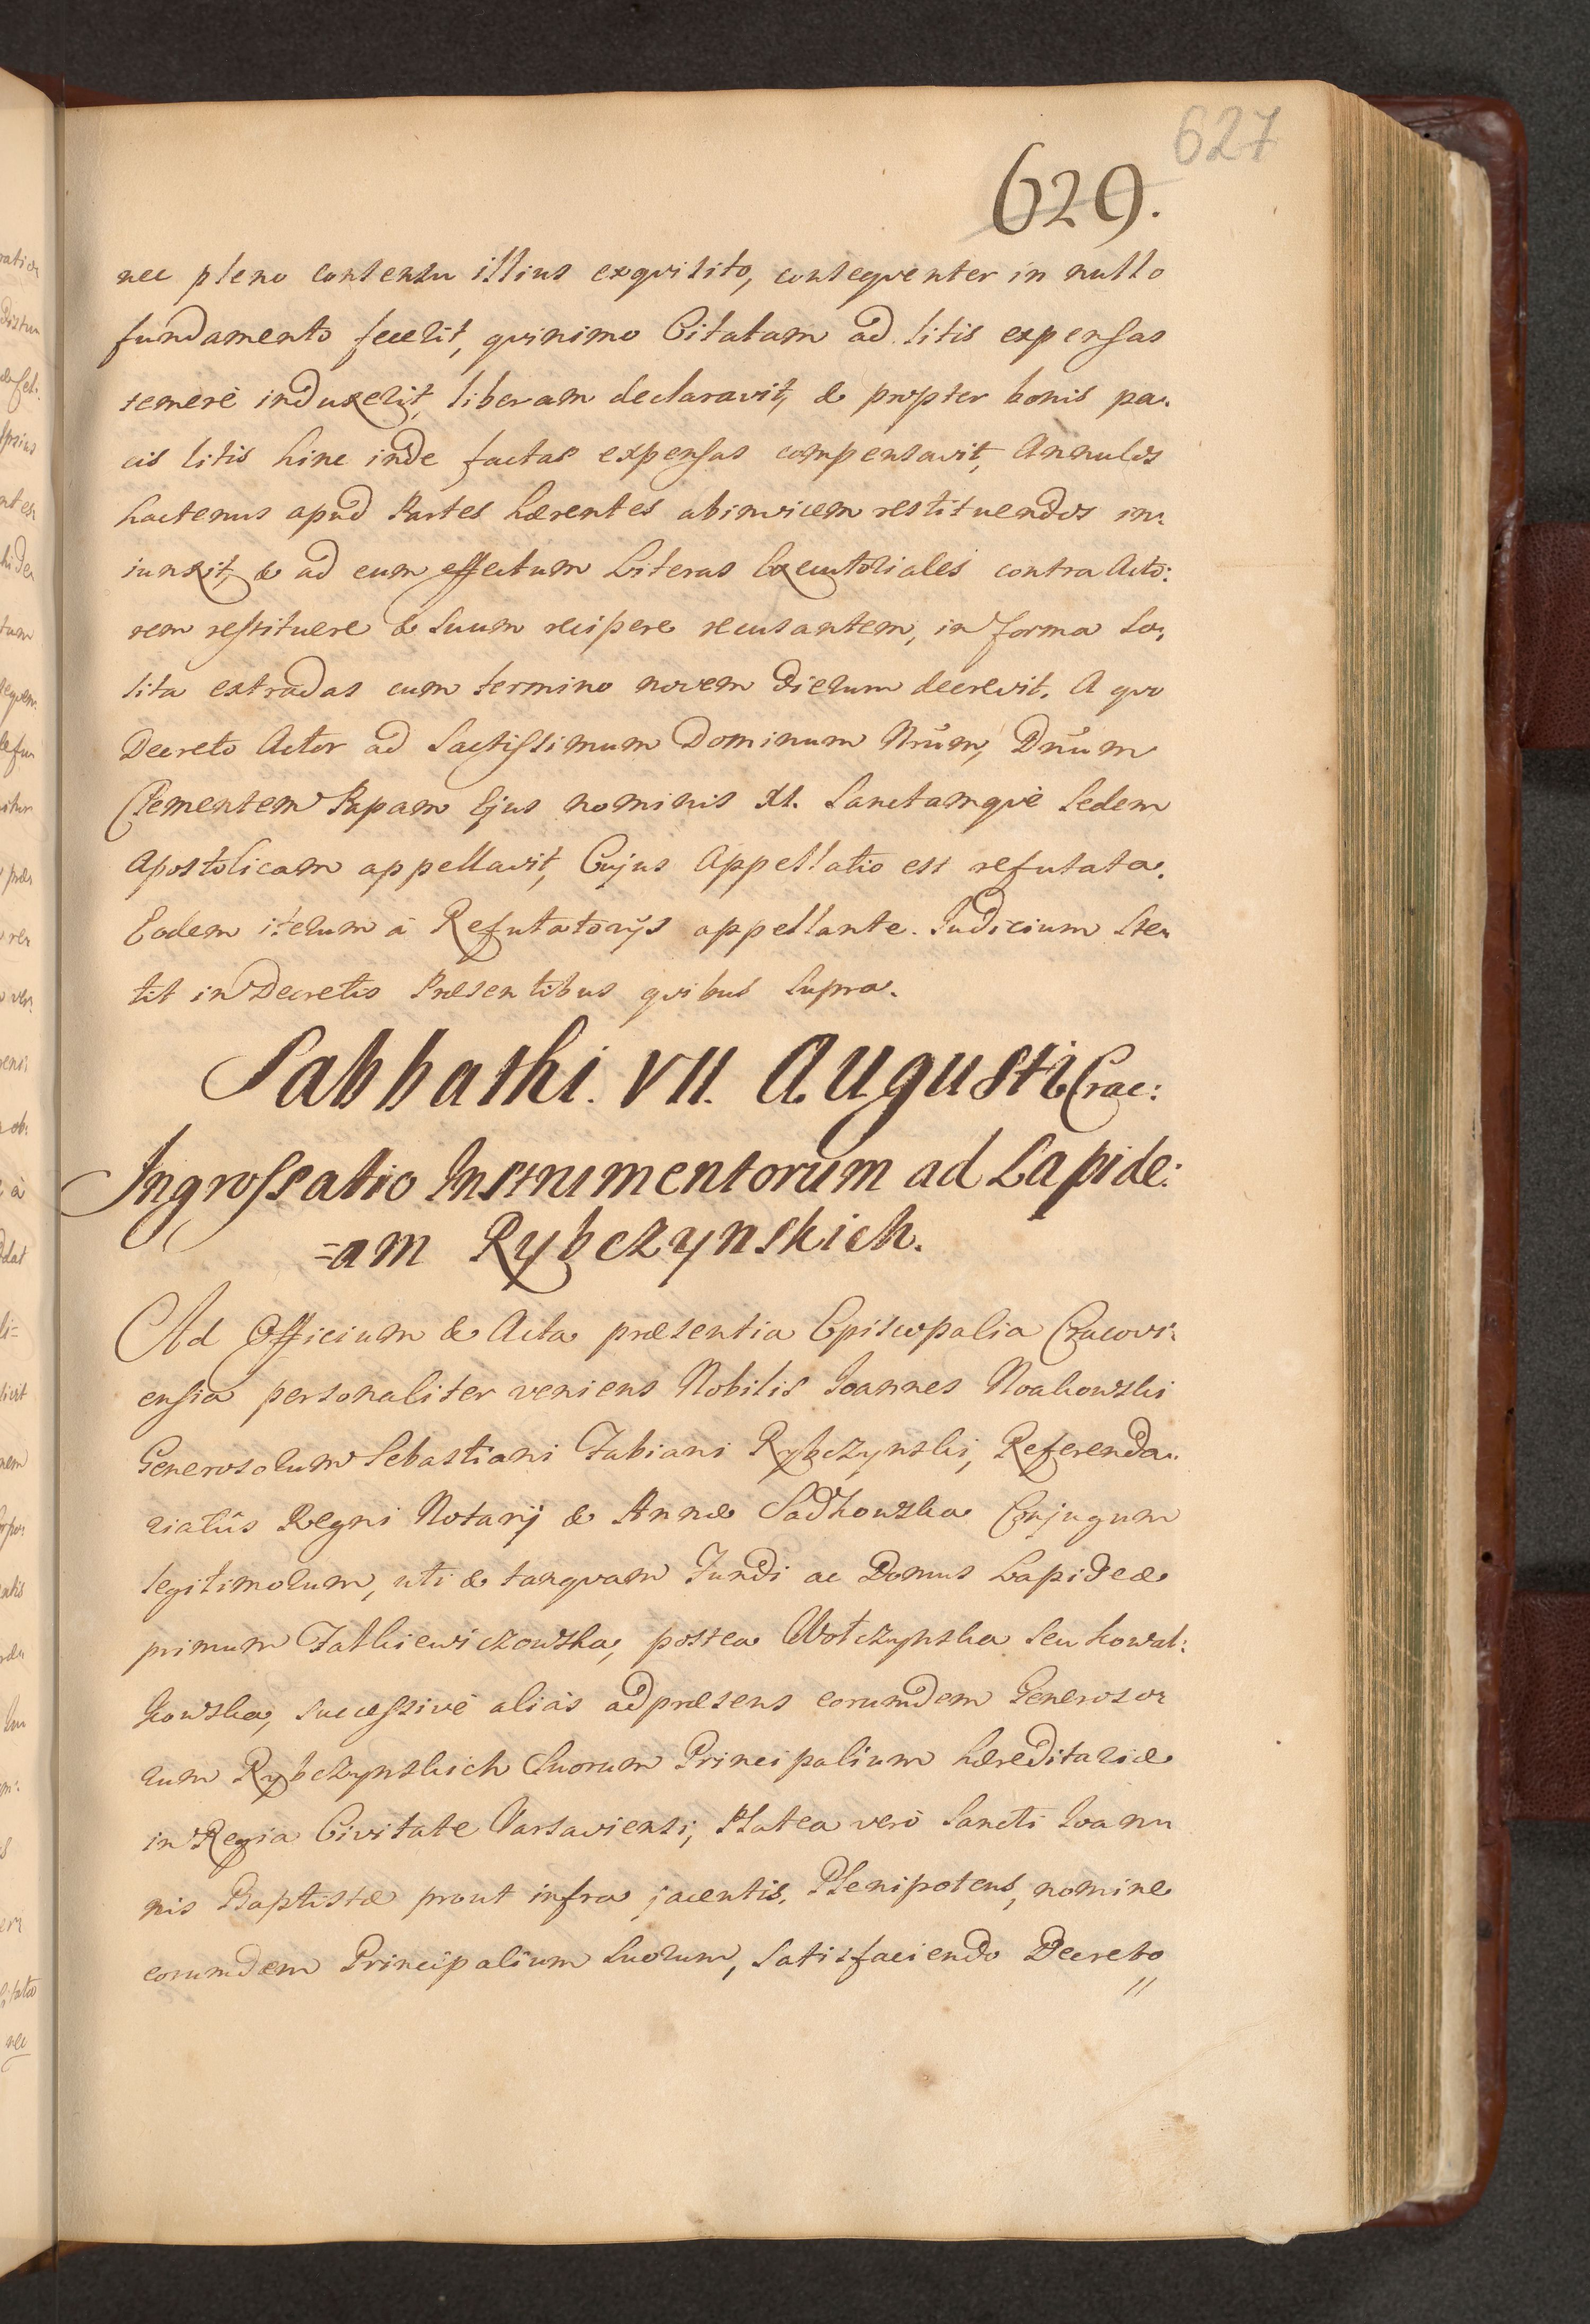 627
629.
nec pleno consensu illius exqvisito, conseqventer in nullo
fundamento fecerit, qvinimo Citatam ad litis expensas
temere induxerit, liberam declaravit, & propter bonis pa:
cis litis hinc inde factas expensas compensavit, Annulos
hactenus apud Partes hærentes abinvicem restituendos in:
iunxit, & ad eum effectum Literas Executoriales contra Acto:
rem restituere & suum recipere recusantem, in forma so:
lita extradas cum termino novem dierum decrevit. A qvo
Decreto Actor ad Sactissimum Dominum Nrum, Dnum
Clementem Papam Ejus nominis XI. Sanctamqve Sedem
Apostolicam appellavit, Cujus Appellatio est refutata.
Eodem iterum à Refutatorijs appellante. Iudicium ste:
tit in Decretis Præsentibus qvibus supra.
Sabbathi. VII. Augusti Crac:
Ingrossatio Instrumentorum ad Lapide:
=am Rybczynskich.
Ad Officium & Acta præsentia Episcopalia Cracovi:
ensia personaliter veniens Nobilis Ioannes Noakowski
Generosorum Sebastiani Fabiani Rybczynski, Referenda:
riatûs Regni Notarij & Annæ Sadkowska Conjugum
legitimorum, uti & tanqvam Fundi ac Domus Lapideæ
primum Fatkiewiczowska, postea Wolczynska seu Kowal:
kowska, successive aliàs ad præsens eorumdem Generoso:
rum Rybczynskich suorum Principalium hæreditariæ
in Regia Civitate Varsaviensi, Platea verò Sancti Ioann
nis Baptistæ prout infra jacentis, Plenipotens, nomine
eorumdem Principalium suorum, satisfaciendo Decreto